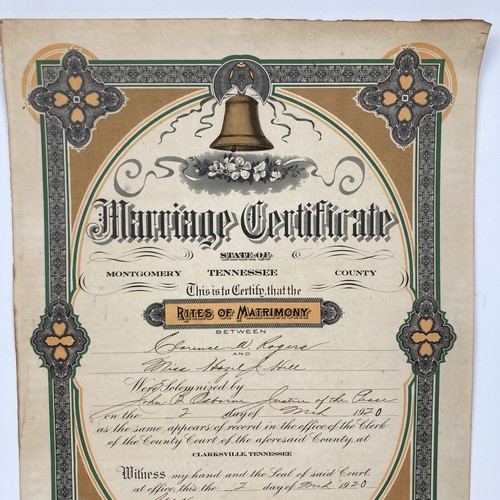 Marriage Certificate
STATE OF
MONTGOMERY TENNESSEE COUNTY
This is to Certify, that the
RITES OF MATRIMONY
BETWEEN
Clarence W Rogers
AND
Miss Hazel Hill
Were Solemnized by
John F. Osborne Justice of the Peace
on the 2 day of Mch 1920
as the same appears of record in the office of the Clerk
of the County Court of the aforesaid County, at
CLARKSVILLE, TENNESSEE
Witness my hand and the Seal of said Court
at office, this the 2 day of Mch 1920